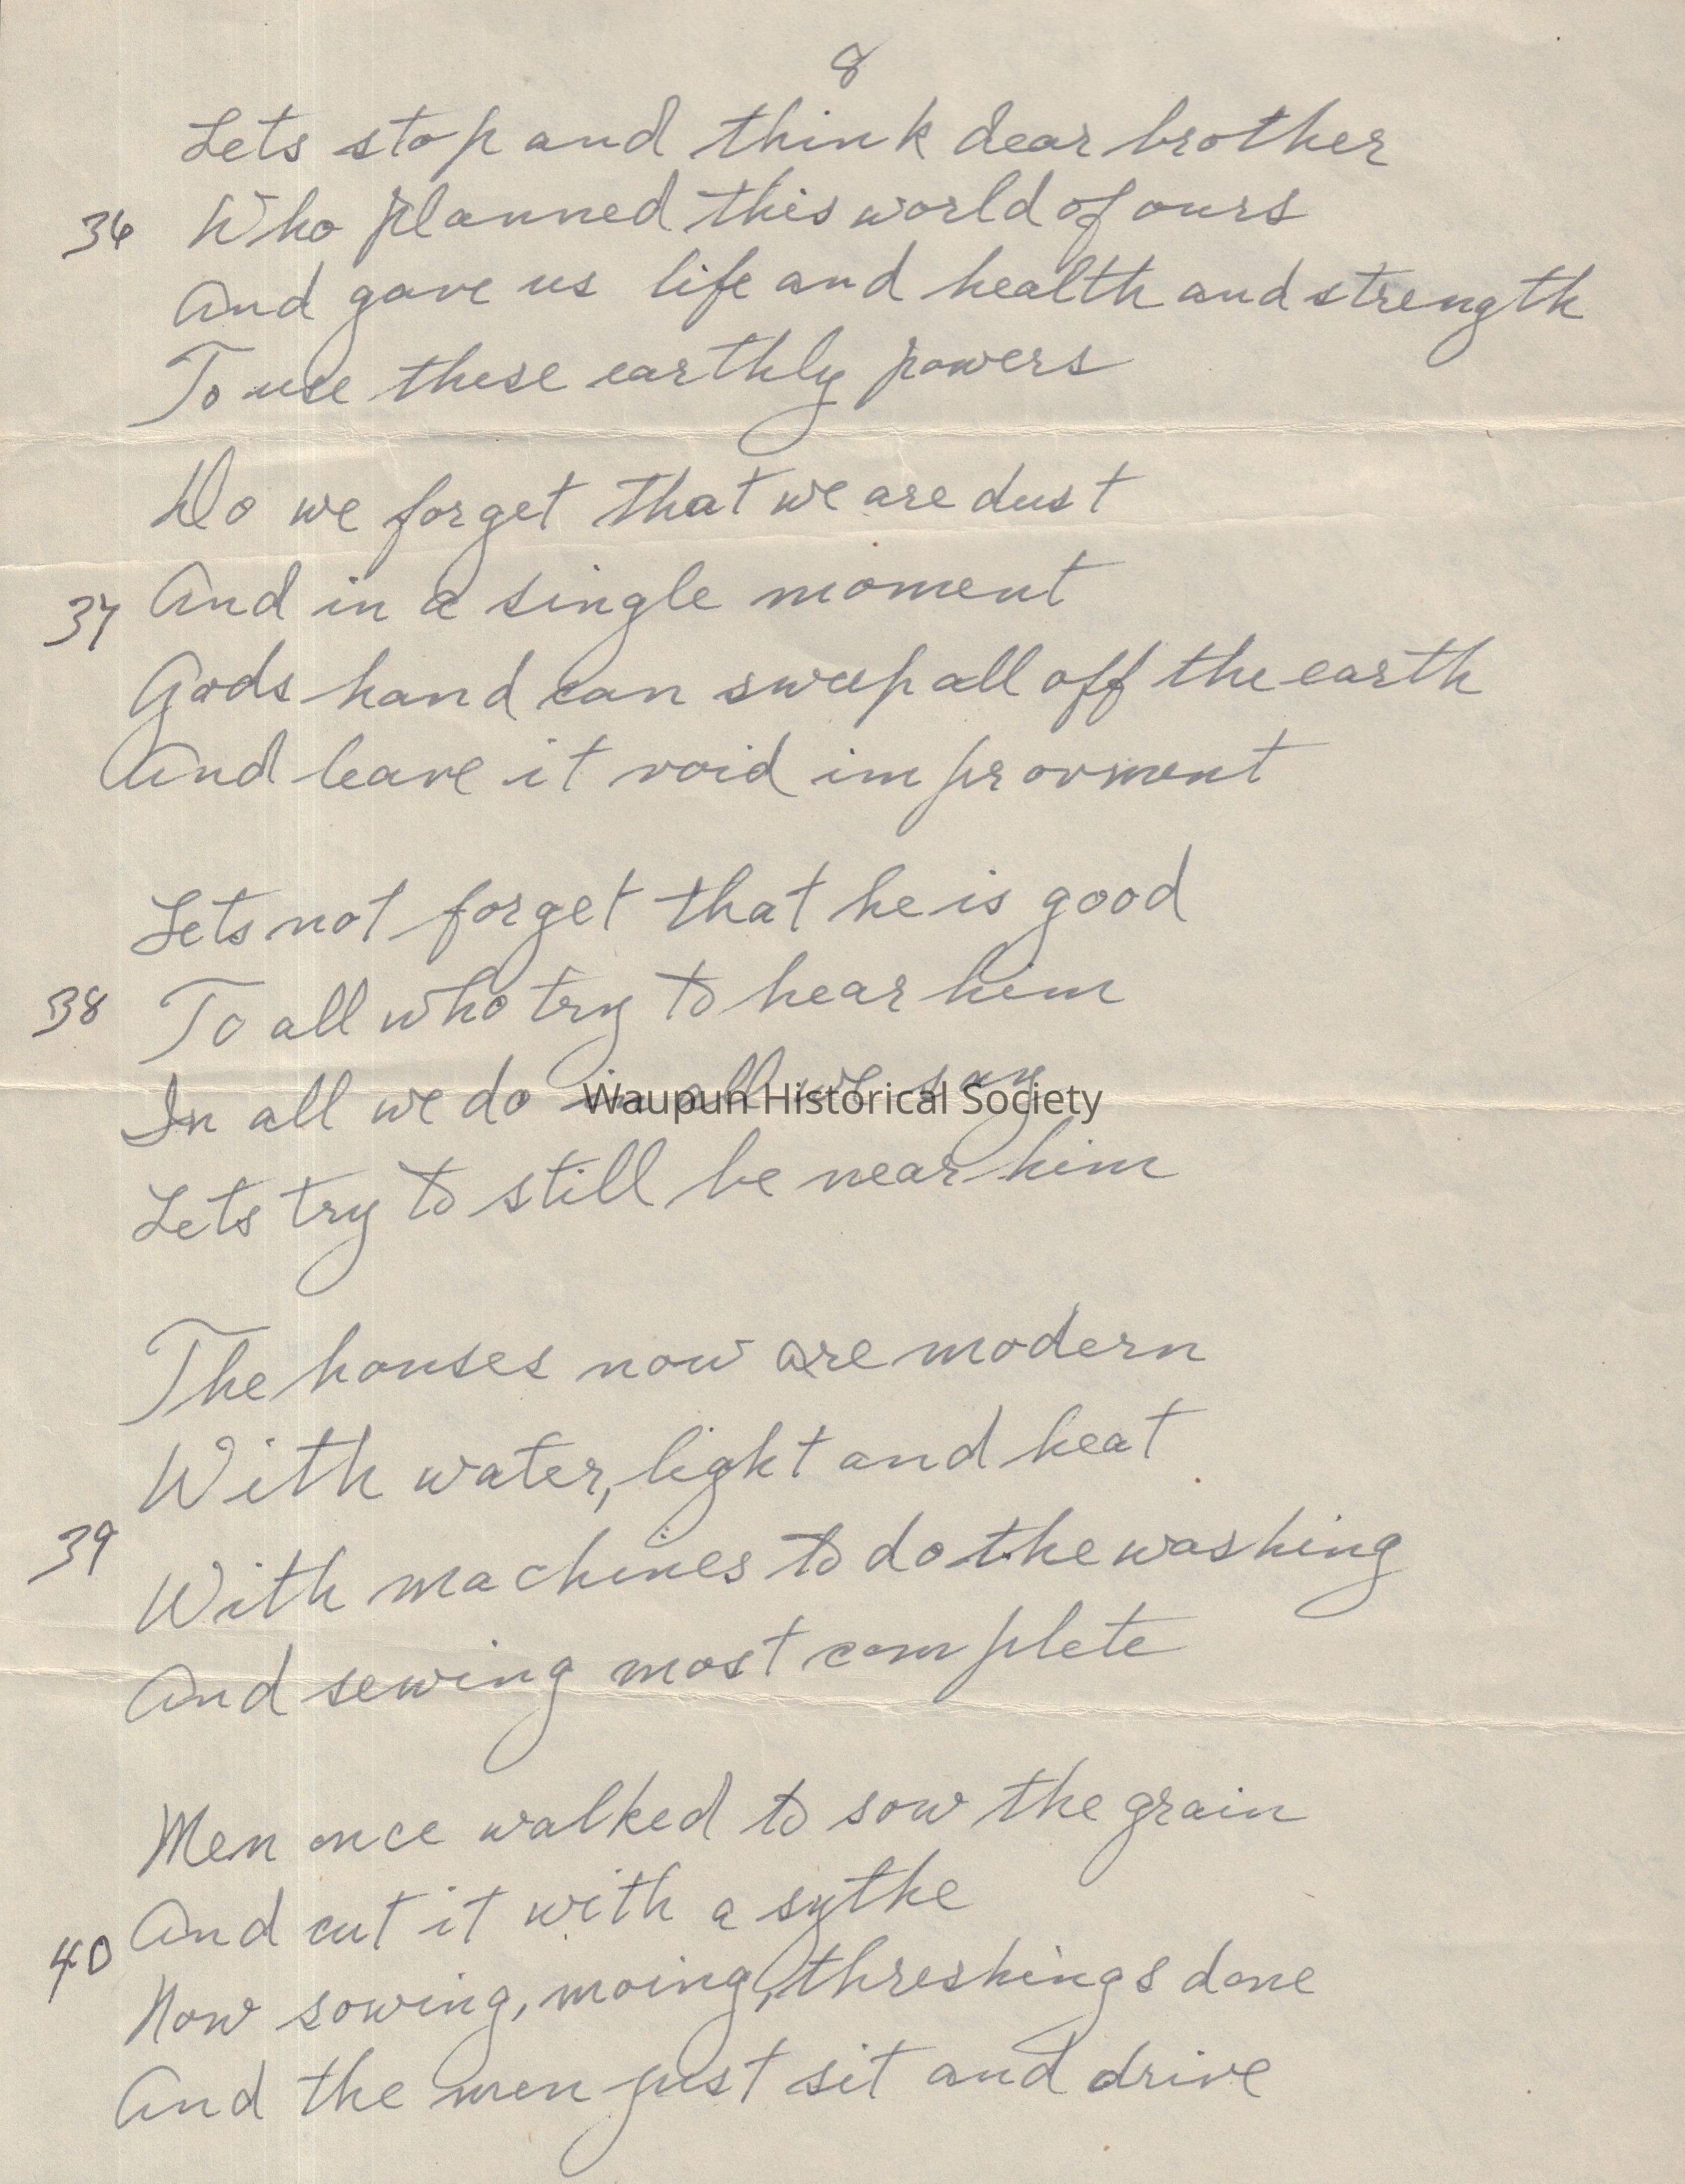 8
Lets stop and think dear brother
36 Who planned this world of ours
And gave us life and health and strength
To use these earthly powers
Do we forget that we are dust
37 And in a single moment
Gods hand can sweep all off the earth
And leave it void improvment
Lets not forget that he is good
38 To all who try to hear him
In all we do in all we say
Waupun Historical Society
Lets try to still be near him
The houses now are modern
With water, light and heat
39 With machines to do the washing
And sewing most complete
Men once walked to sow the grain
And cut it with a sythe
40 Now sowing, moing, threshings done
And the men just sit and drive